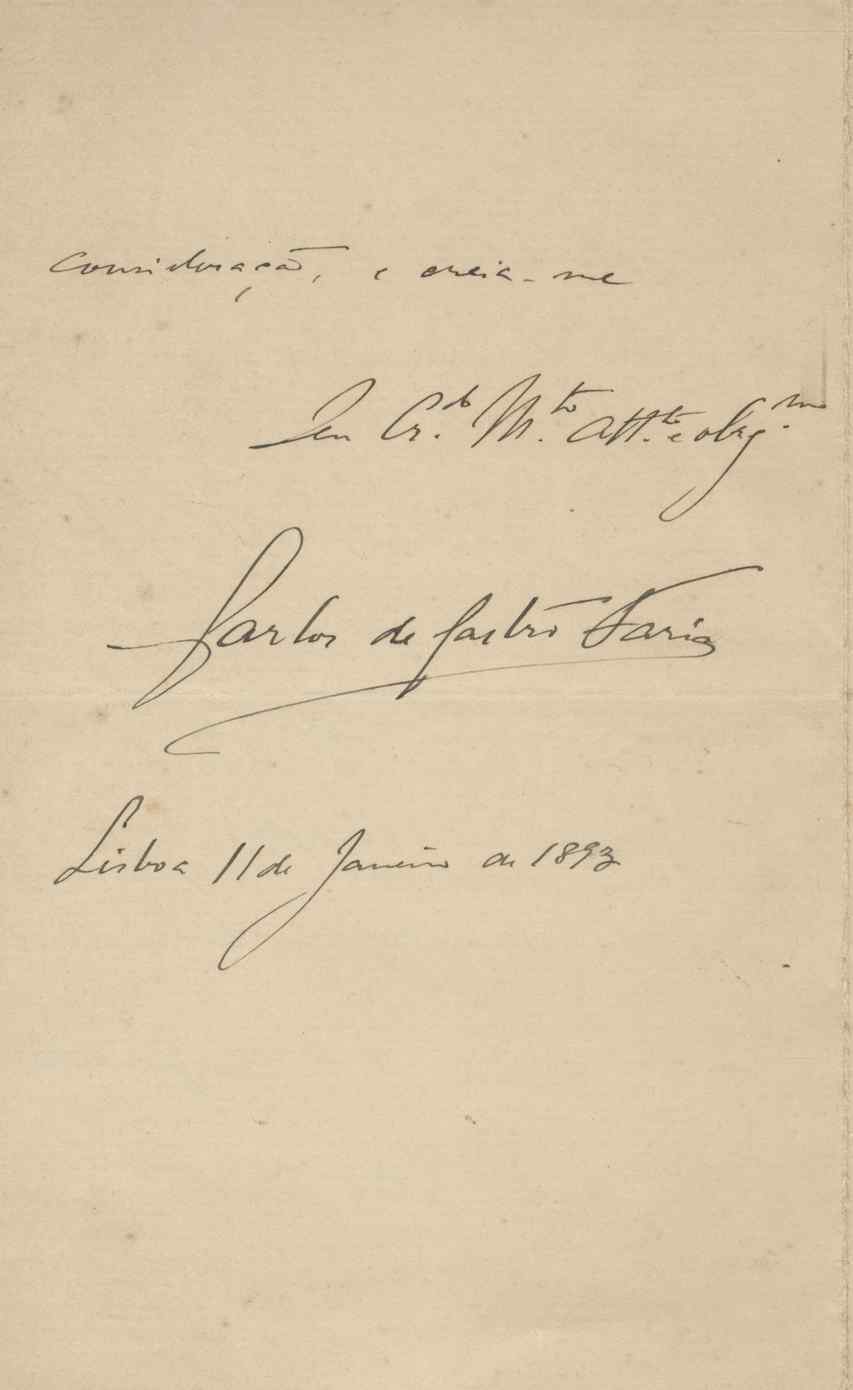 consideração, e creia-me
Seu Cr.do M.to Att.te e obrg.mo
Carlos de Castro Faria
Lisboa 11 de Janeiro de 1893